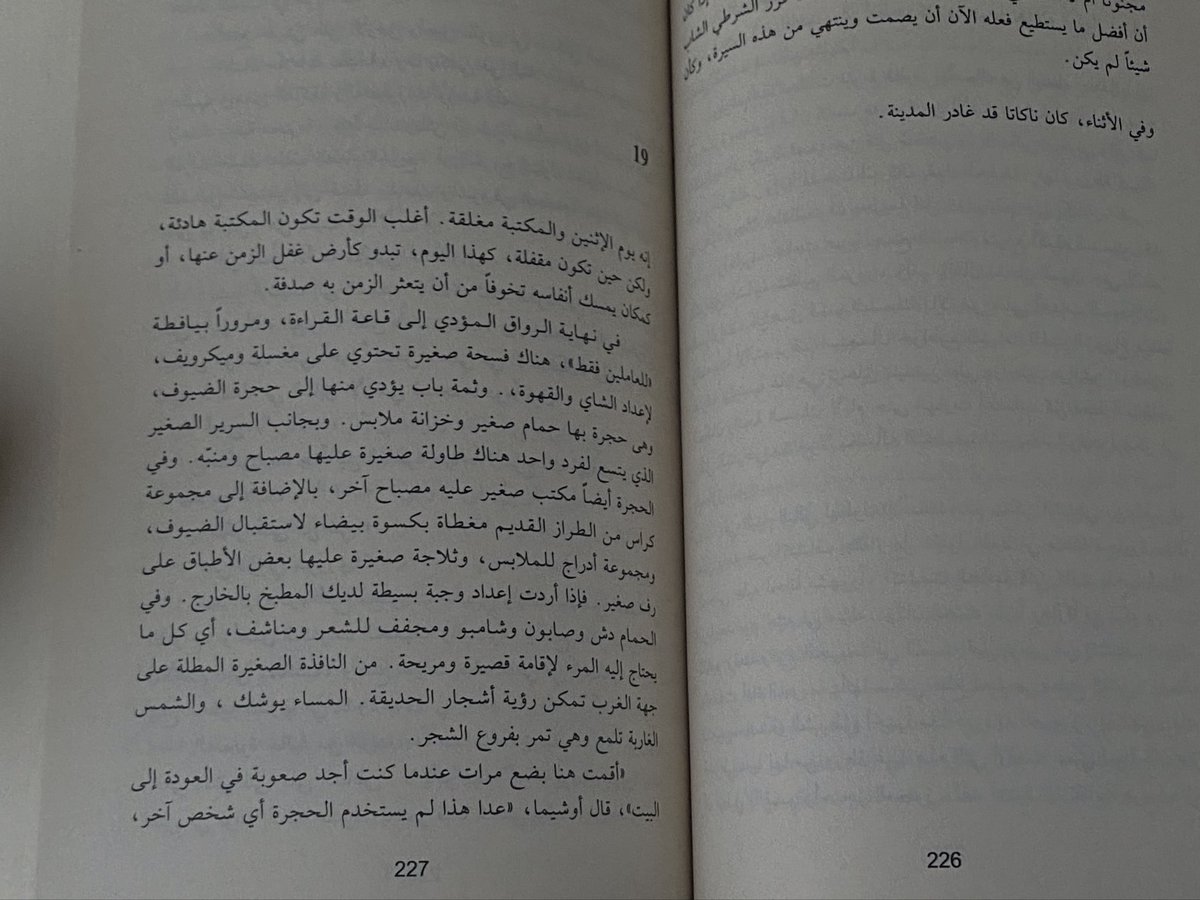 أن أفضل ما يستطيع فعله الآن أن يصمت وينتهي من هذه السيرة، وكأن
شيئاً لم يكن.
وفي الأثناء، كان ناكاتا قد غادر المدينة.
226
19
إنه يوم الإثنين والمكتبة مغلقة. أغلب الوقت تكون المكتبة هادئة،
ولكن حين تكون مقفلة، كهذا اليوم، تبدو كأرض غفل الزمن عنها، أو
كمكان يمسك أنفاسه تخوفاً من أن يتعثر الزمن به صدفة.
في نهاية الرواق المؤدي إلى قاعة القراءة، ومروراً بيافطة
«للعاملين فقط»، هناك فسحة صغيرة تحتوي على مغسلة وميكرويف،
لإعداد الشاي والقهوة،. وثمة باب يؤدي منها إلى حجرة الضيوف،
وهى حجرة بها حمام صغير وخزانة ملابس. وبجانب السرير الصغير
الذي يتسع لفرد واحد هناك طاولة صغيرة عليها مصباح ومنبّه. وفي
الحجرة أيضاً مكتب صغير عليه مصباح آخر، بالإضافة إلى مجموعة
كراس من الطراز القديم مغطاة بكسوة بيضاء لاستقبال الضيوف،
ومجموعة أدراج للملابس، وثلاجة صغيرة عليها بعض الأطباق على
رف صغير. فإذا أردت إعداد وجبة بسيطة لديك المطبخ بالخارج. وفي
الحمام دش وصابون وشامبو ومجفف للشعر ومناشف، أي كل ما
يحتاج إليه المرء لإقامة قصيرة ومريحة. من النافذة الصغيرة المطلة على
جهة الغرب تمكن رؤية أشجار الحديقة. المساء يوشك ، والشمس
الغاربة تلمع وهي تمر بفروع الشجر.
«أقمت هنا بضع مرات عندما كنت أجد صعوبة في العودة إلى
البيت»، قال أوشيما، «عدا هذا لم يستخدم الحجرة أي شخص آخر،
227